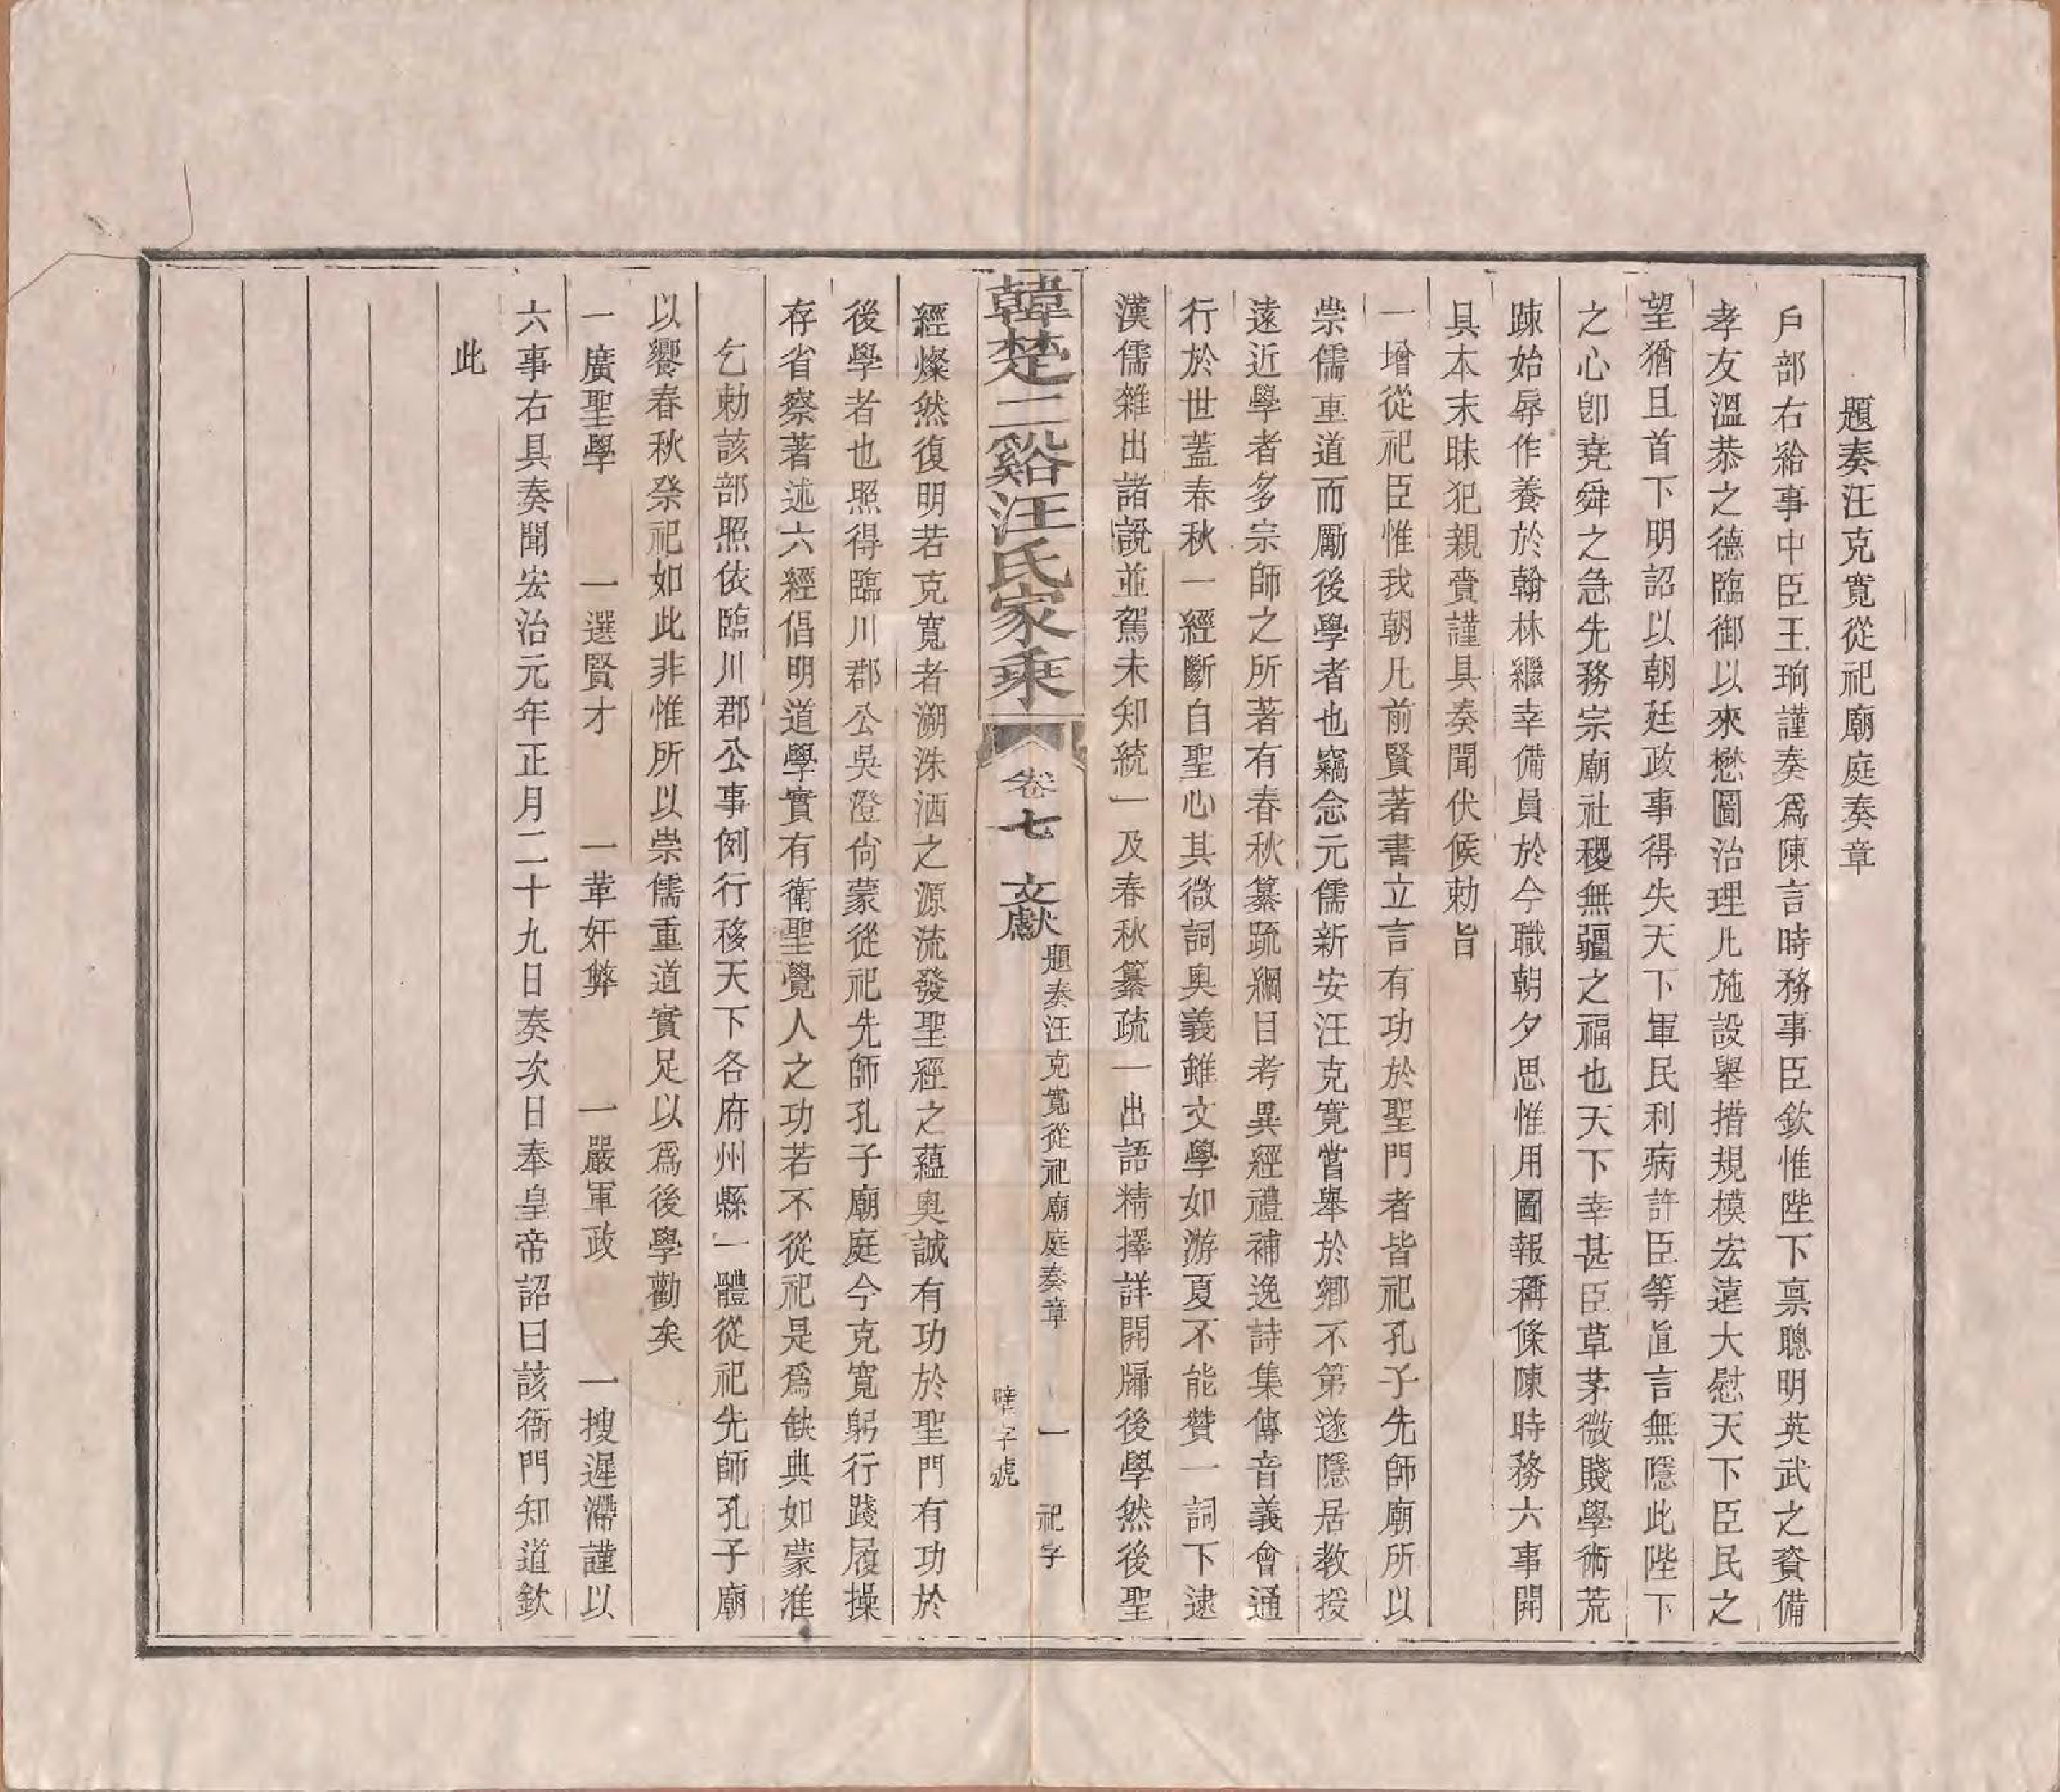 題奏汪克寬從祀廟庭奏章
戶部右給事中臣王珦謹奏爲陳言時務事臣欽惟陛下禀聰明英武之資備
孝友溫恭之德臨御以來懋圖治理凡施設舉措規模宏遠大慰天下臣民之
望猶且首下明詔以朝廷政事得失天下軍民利病許臣等直言無隱此陛下
之心卽堯舜之急先務宗廟社稷無疆之福也天下幸甚臣草茅微賤學術荒
踈始辱作養於翰林繼幸備員於今職朝夕思惟用圖報稱條陳時務六事開
具本末昧犯親賫謹具奏聞伏候勅旨
一增從祀臣惟我朝凡前賢著書立言有功於聖門者皆祀孔子先師廟所以
崇儒重道而勵後學者也竊念元儒新安汪克寬嘗舉於鄉不第遂隱居教授
遠近學者多宗師之所著有春秋纂疏綱目考異經禮補逸詩集傳音義會通
行於世蓋春秋一經斷自聖心其微詞奥義雖文學如游夏不能贊一詞下逮
漢儒雜出諸說並駕未知統一及春秋纂疏一出語精擇詳開牖後學然後聖
韓楚二谿汪氏家乘
卷七 文獻
題奏汪克寬從祀廟庭奏章 一 祀字
壁字號
經燦然復明若克寬者溯洙泗之源流發聖經之蘊奥誠有功於聖門有功於
後學者也照得臨川郡公吳澄尙蒙從祀先師孔子廟庭今克寬躬行踐履操
存省察著述六經倡明道學實有衛聖覺人之功若不從祀是爲缺典如蒙准
乞勅該部照依臨川郡公事例行移天下各府州縣一體從祀先師孔子廟
以饗春秋祭祀如此非惟所以崇儒重道實足以爲後學勸矣
一廣聖學 一選賢才 一革奸弊 一嚴軍政 一搜遲滯謹以
六事右具奏聞宏治元年正月二十九日奏次日奉皇帝詔曰該衙門知道欽
此